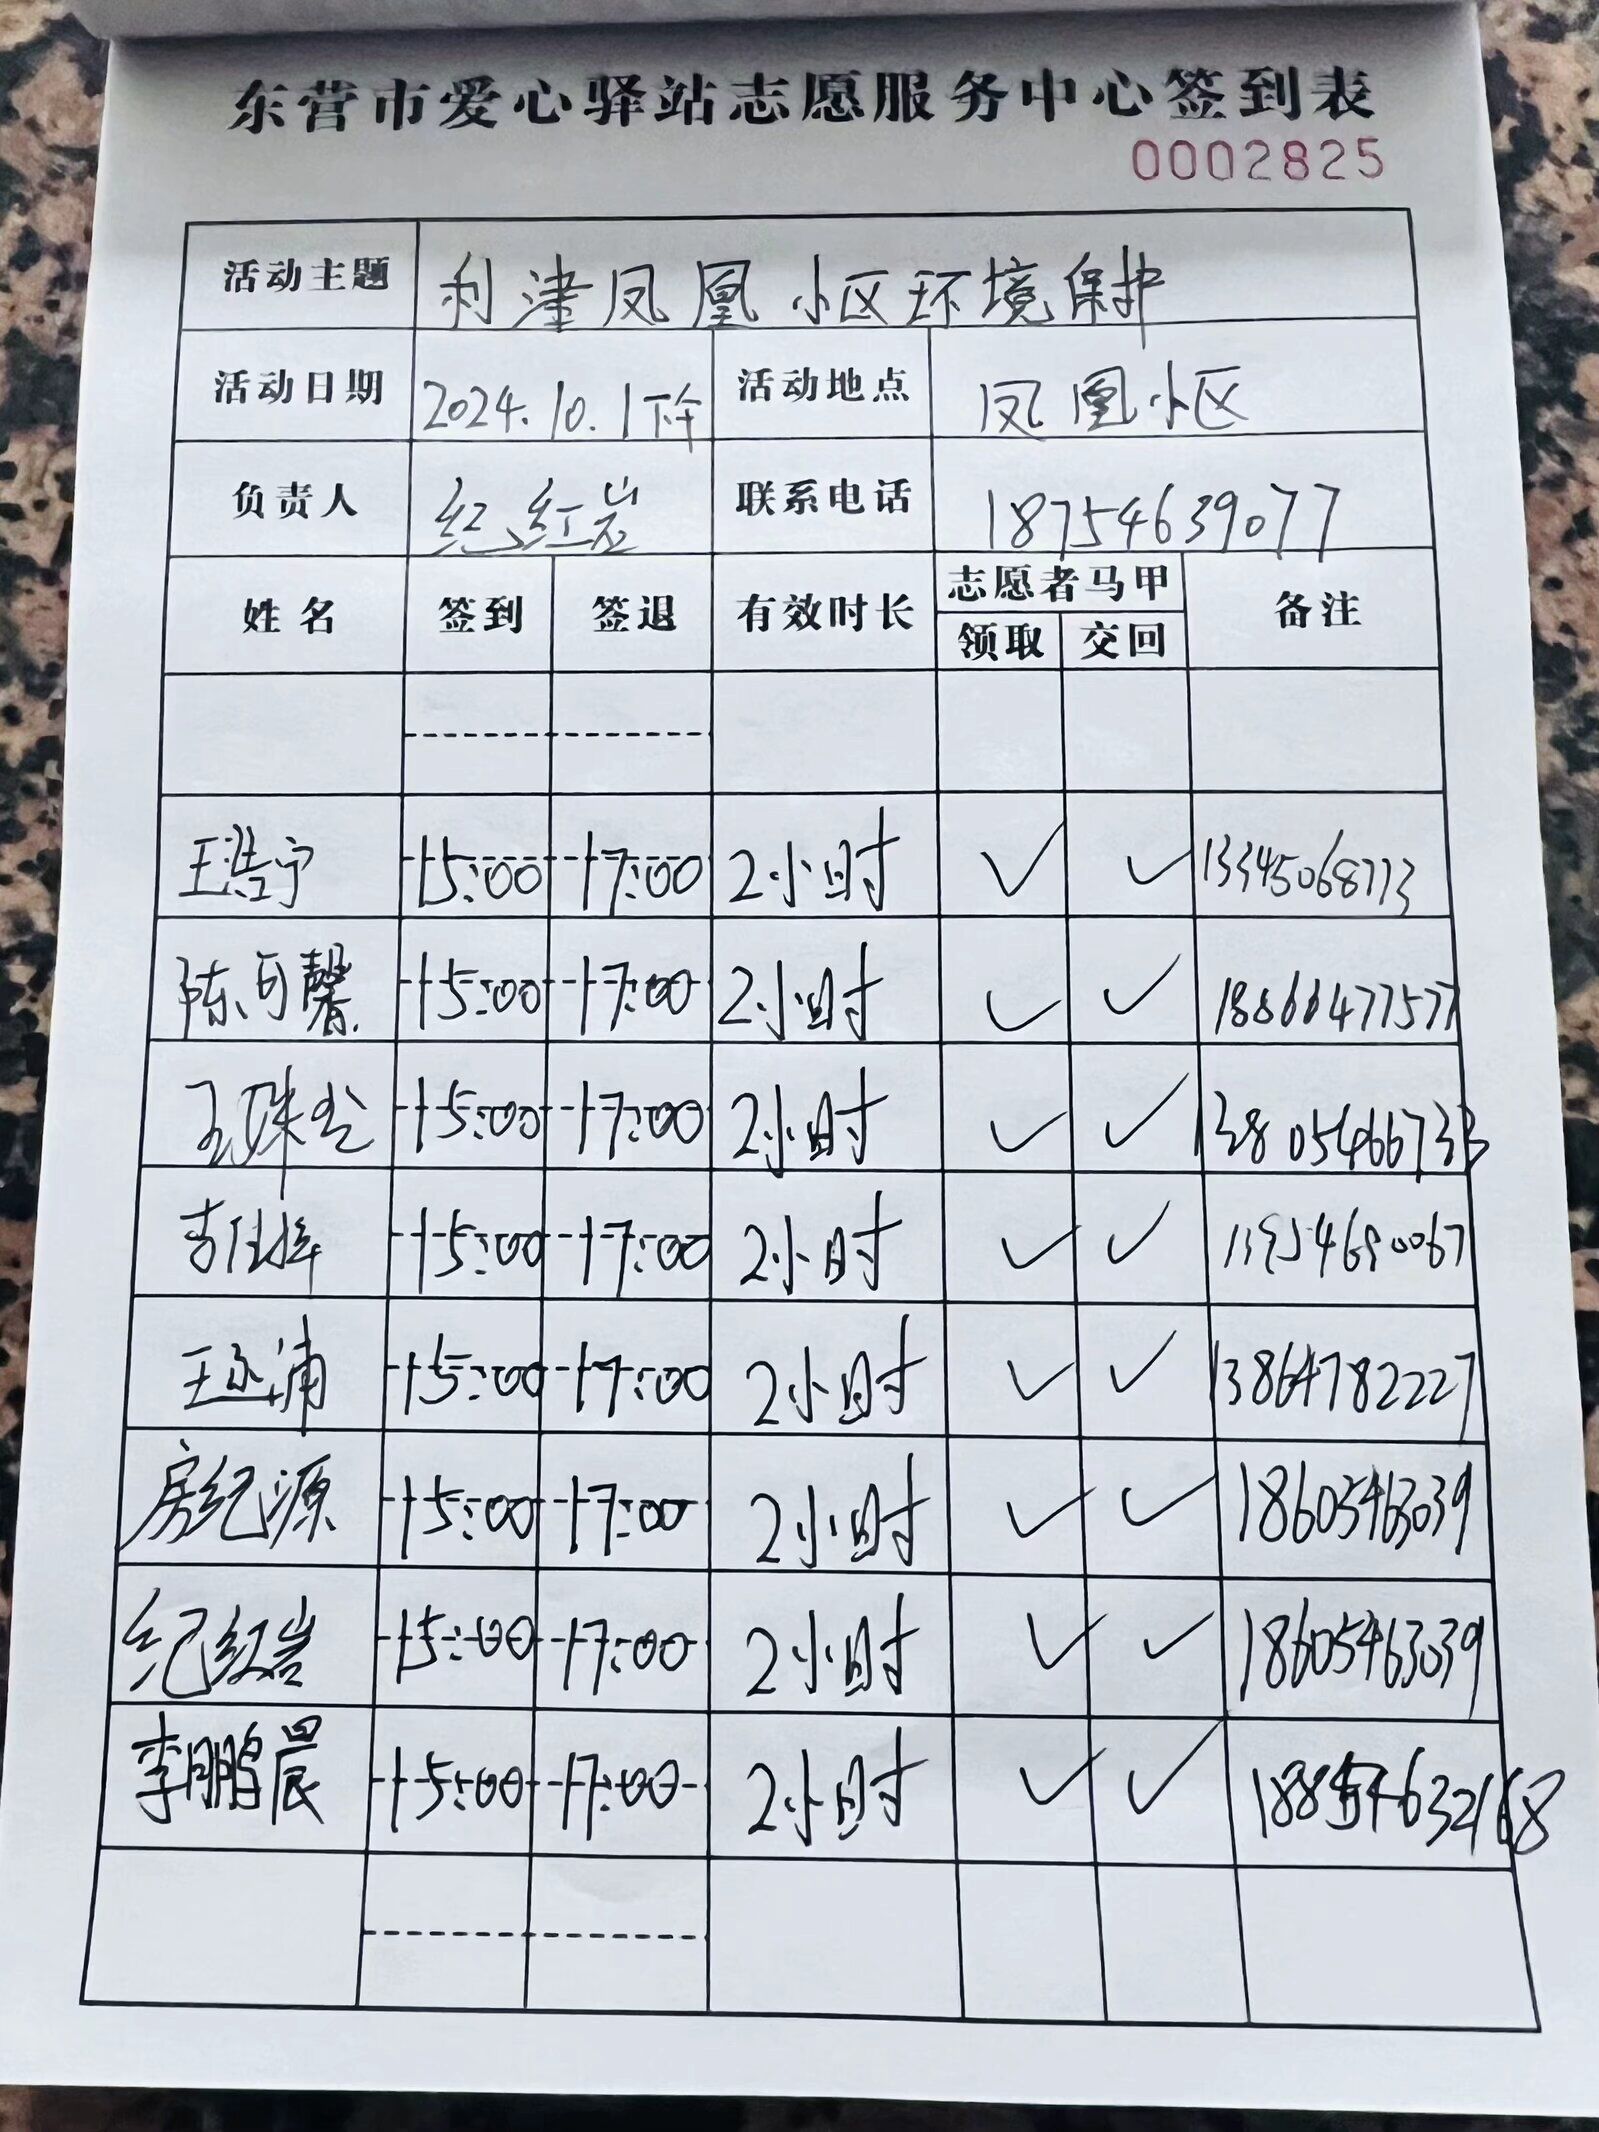 东营市爱心驿站志愿服务中心签到表
0002825
活动主题 利津凤凰小区环境保护
活动日期 2024.10.1下午 活动地点 凤凰小区
负责人 纪红岩 联系电话 18754639077
姓名 签到 签退 有效时长 志愿者马甲 备注
领取 交回
王浩宁 15:00 17:00 2小时 ✓ ✓ 13345068713
陈可馨 15:00 17:00 2小时 ✓ ✓ 18866477577
15:00 17:00 2小时 ✓ ✓ 13805466733
15:00 17:00 2小时 ✓ ✓
15:00 17:00 2小时 ✓ ✓ 13864782227
房纪源 15:00 17:00 2小时 ✓ ✓ 18605463039
纪红岩 15:00 17:00 2小时 ✓ ✓ 18605463039
李鹏晨 15:00 17:00 2小时 ✓ ✓